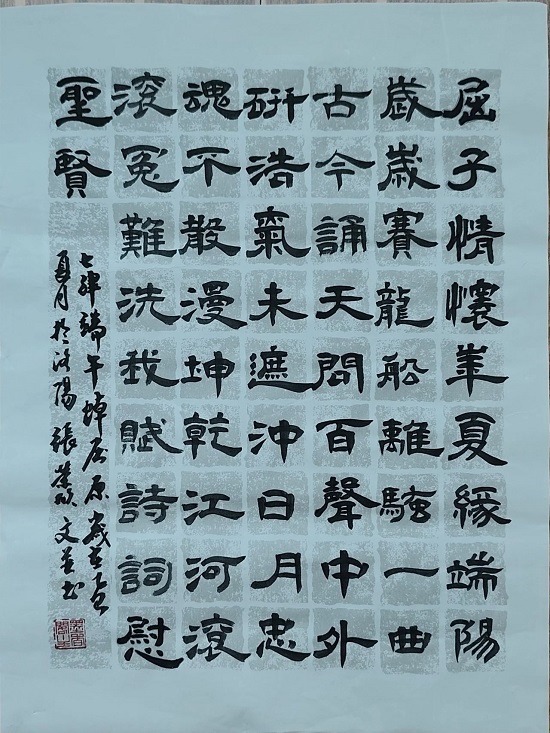 屈子情懷華夏緣端陽
歲歲賽龍船離騷一曲
古今誦天問百聲中外
研浩氣未遮沖日月忠
魂不散漫坤乾江河滾
滾冤難洗我賦詩詞慰
聖賢
七律端午悼屈原歲在
夏月於洛陽張文并书